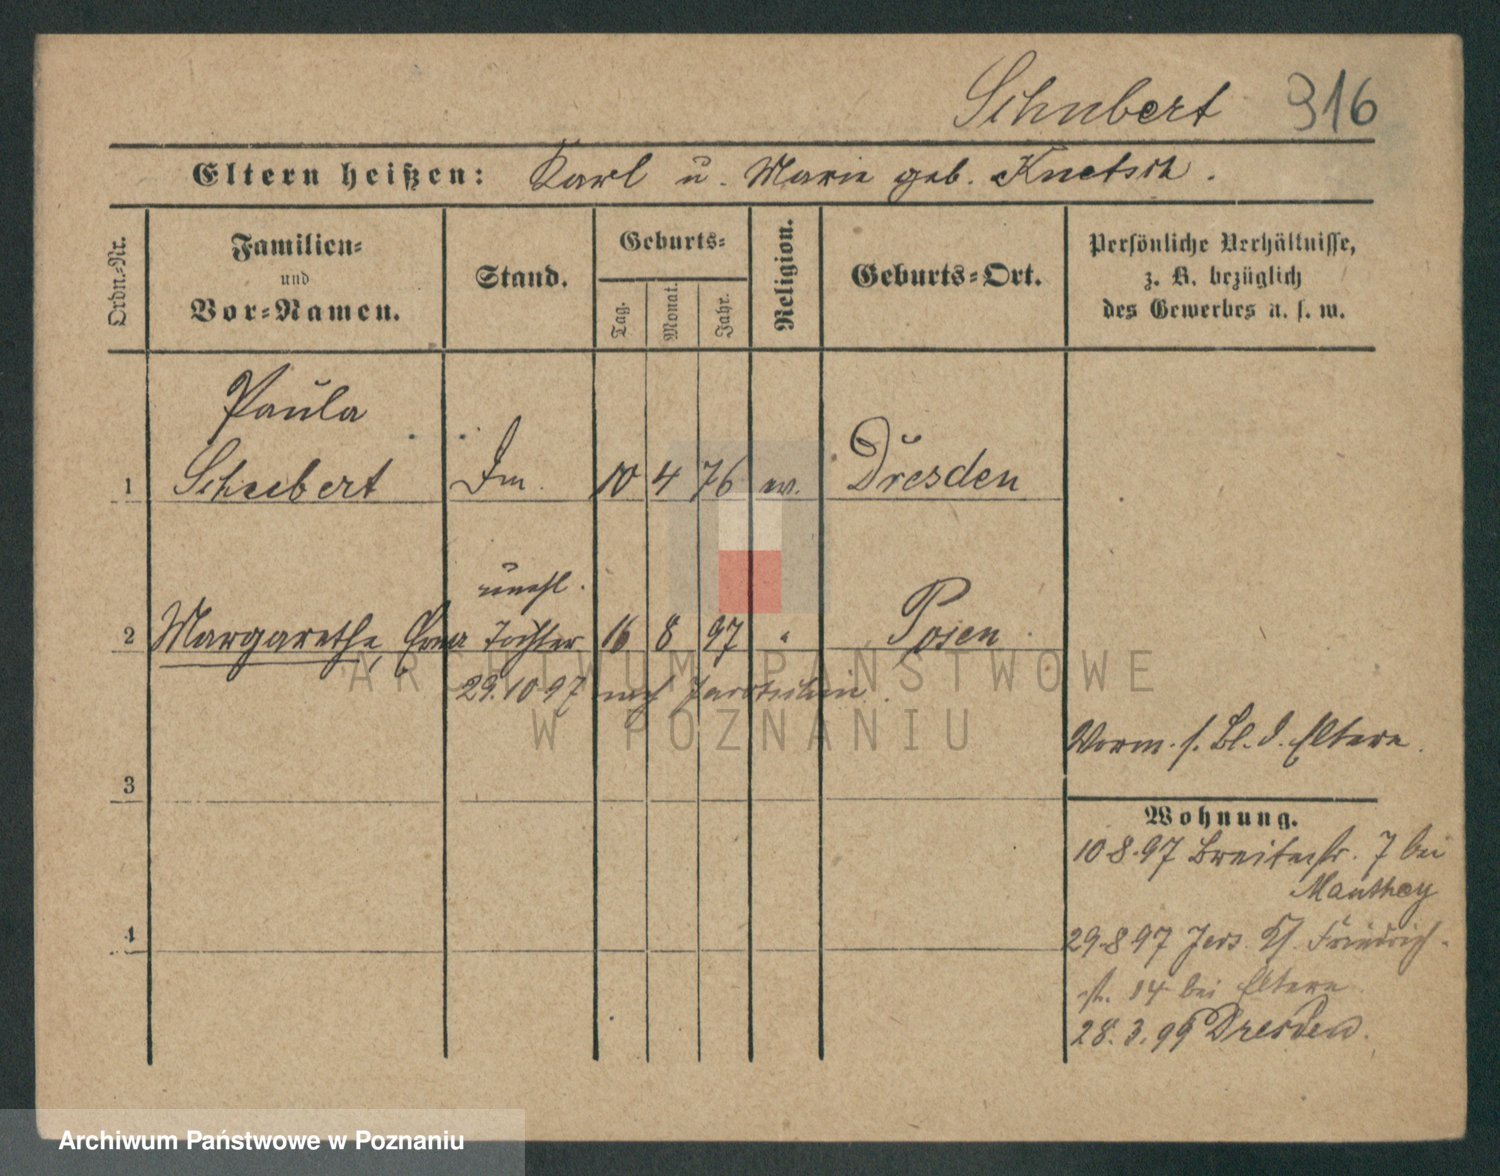 Schubert 316
Eltern heißen: Karl u. Marie geb. Knetsch.
Ordn.-Nr.
Familien- und Vor-Namen.
Stand.
Geburts-
Tag. Monat. Jahr.
Religion.
Geburts-Ort.
Persönliche Verhältnisse,
z. B. bezüglich
des Gewerbes u. s. w.
Paula
1 Schubert 10 4 76 ev. Dresden
unehl.
2 Margarethe, Erna Tochter 16 8 97 " Posen
29.10 97 nach
Vorm. s. Bl. d. Eltern.
3
Wohnung.
10.8.97 Breitestr. 7 bei
Manthey
4
29.8 97 Friedrich-
st. 14 bei Eltern
28.3.99 Dresden.
ARCHIWUM PAŃSTWOWE
W POZNANIU
Archiwum Państwowe w Poznaniu